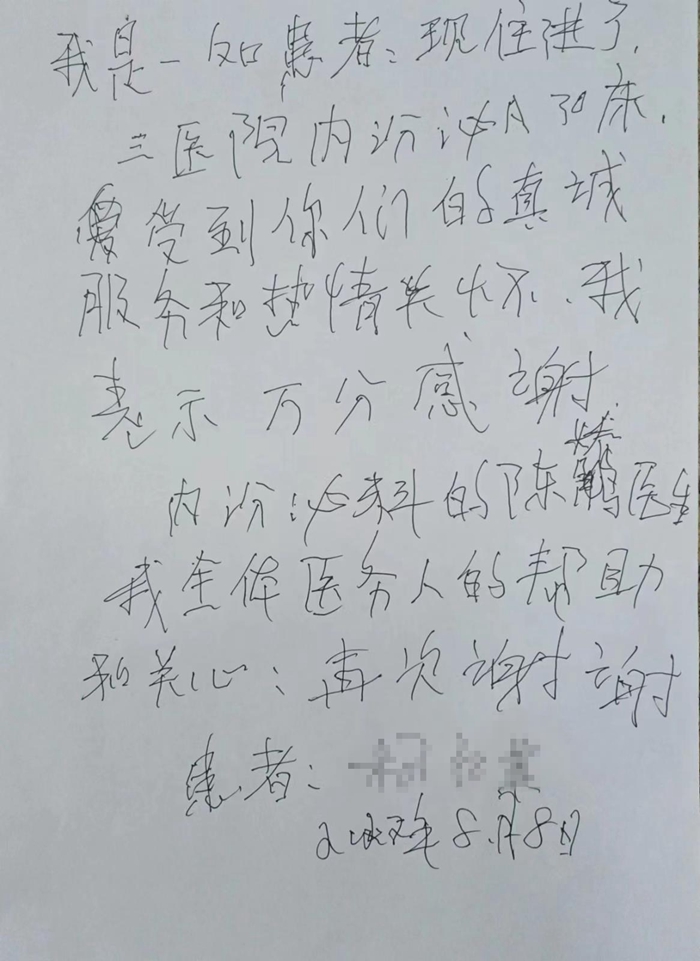 我是一如患者：现住进了.
三医院内汾泌A30床.
受到你们的真诚
服务和热情关怀.我
表示万分感谢.
内汾泌科的陈鹊医生
我全体医务人的帮助
和关心：再次谢谢
患者：
年8月8日